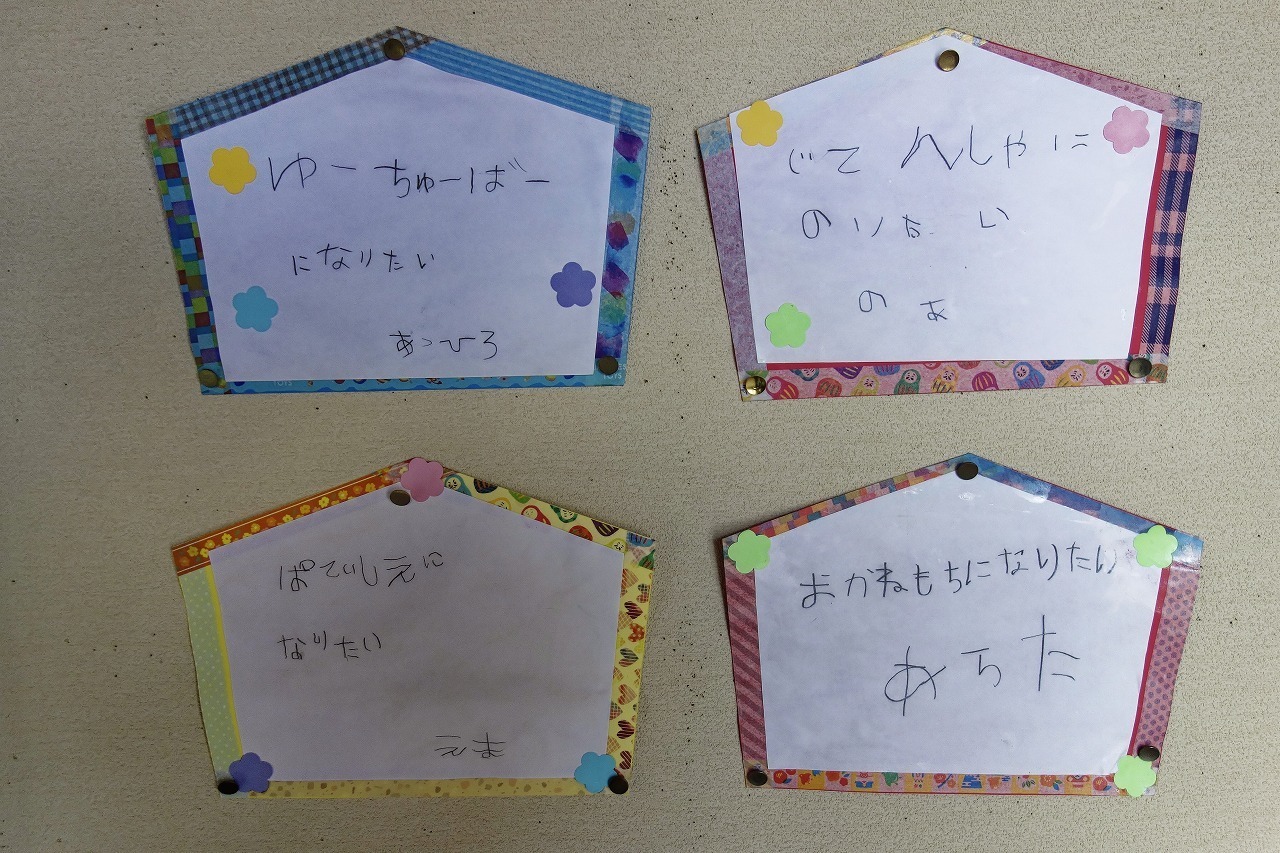 ゆーちゅーばー
になりたい
あっひろ
じてんしゃに
のりたい
のあ
ぱてぃしえに
なりたい
えま
おかねもちになりたい
あらた